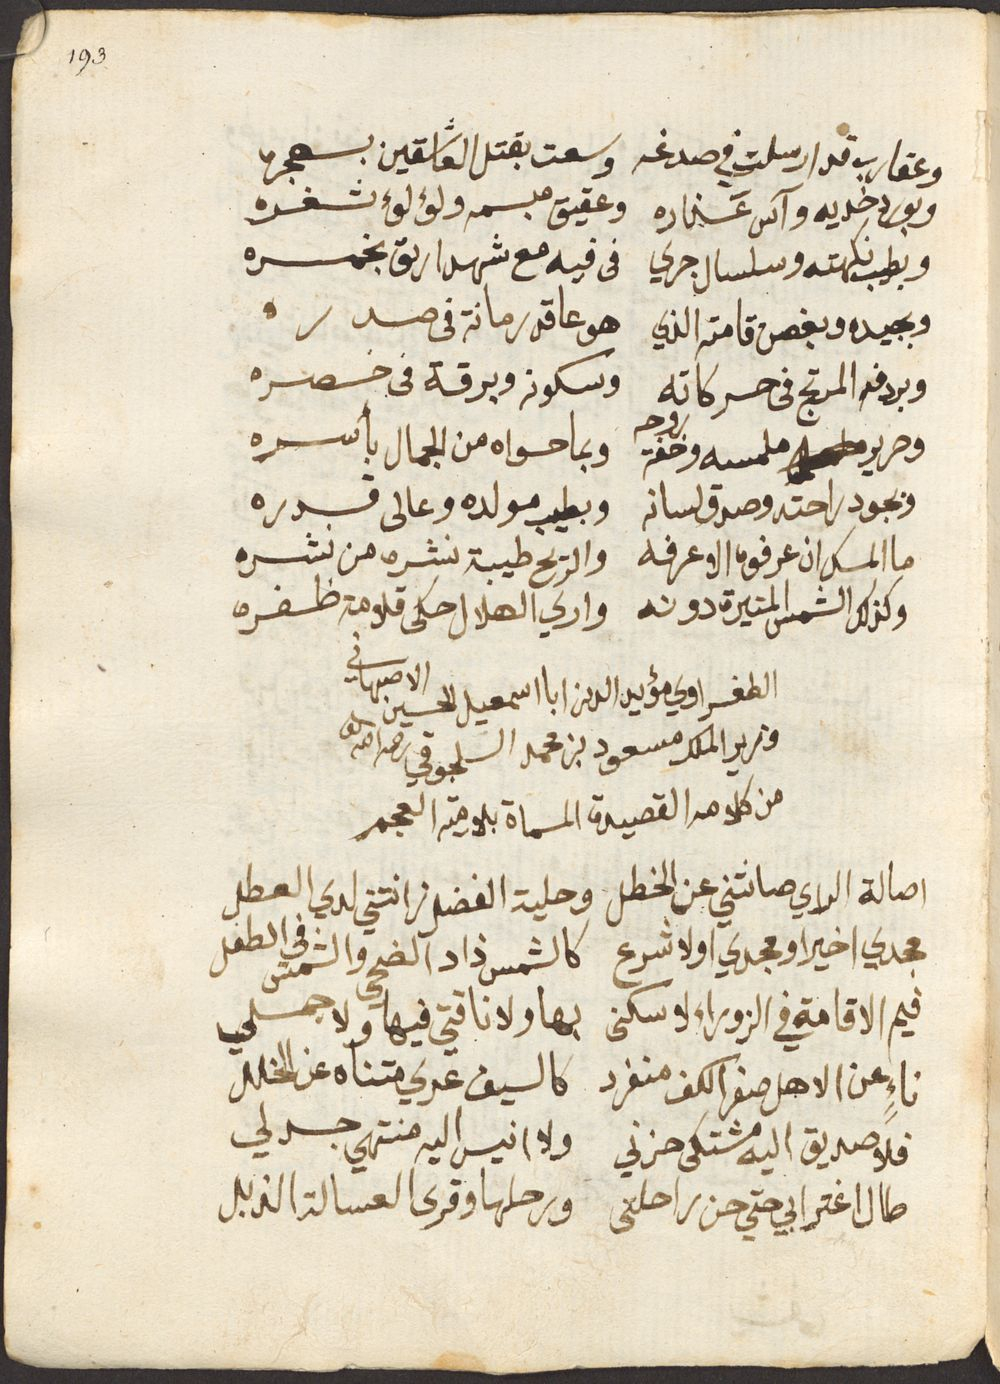 193
وعقارب قد ارسلت في صدغه وسعت بقتل العاشقين بهجره
وبورد خديه وآس عذاره وعقيق مبسمه ولؤلؤ ثغره
وبطيب نكهته وسلسال جرى فى فيه مع شهد اريق بخمره
وبجيده وبغصن قامته الذي هو عاقد رمانة فى صدره
وبردفه المرتج فى حركاته وسكونه وبرقة فى خصره
وحرير ملمسه وخفة روحه وبما حواه من الجمال بأسره
وبجود راحته وصدق لسانه وبطيب مولده وعالى قدره
ما المسك ان عرفوه الا عرفه والريح طيبة نشره من نشره
وكذلك الشمس المنيرة دونه واري الهلال حكى قلامة ظفره
الطغراوي مؤيد الدين ابا اسمعيل الحسين الاصبهاني
وزير الملك مسعود بن محمد السلجوقي رحمه الله
من كلامه القصيدة المسماة بلامية العجم
اصالة الراي صانتني عن الخطل وحلية الفضل زانتني لدي العطل
مجدي اخيرا ومجدي اولا شرع كالشمس ذاد الضحي والشمس في الطفل
فيم الاقامة في الزوراء لا سكنى بها ولا ناقتي فيها ولا جملي
ناءٍ عن الاهل صفر الكف منفرد كالسيف عري متناه عن الخلل
فلا صديق اليه مشتكى حزني ولا انيس اليه منتهي جدلي
طال اغترابي حتي حن راحلتى ورحلها وقرى العسالة الذبل